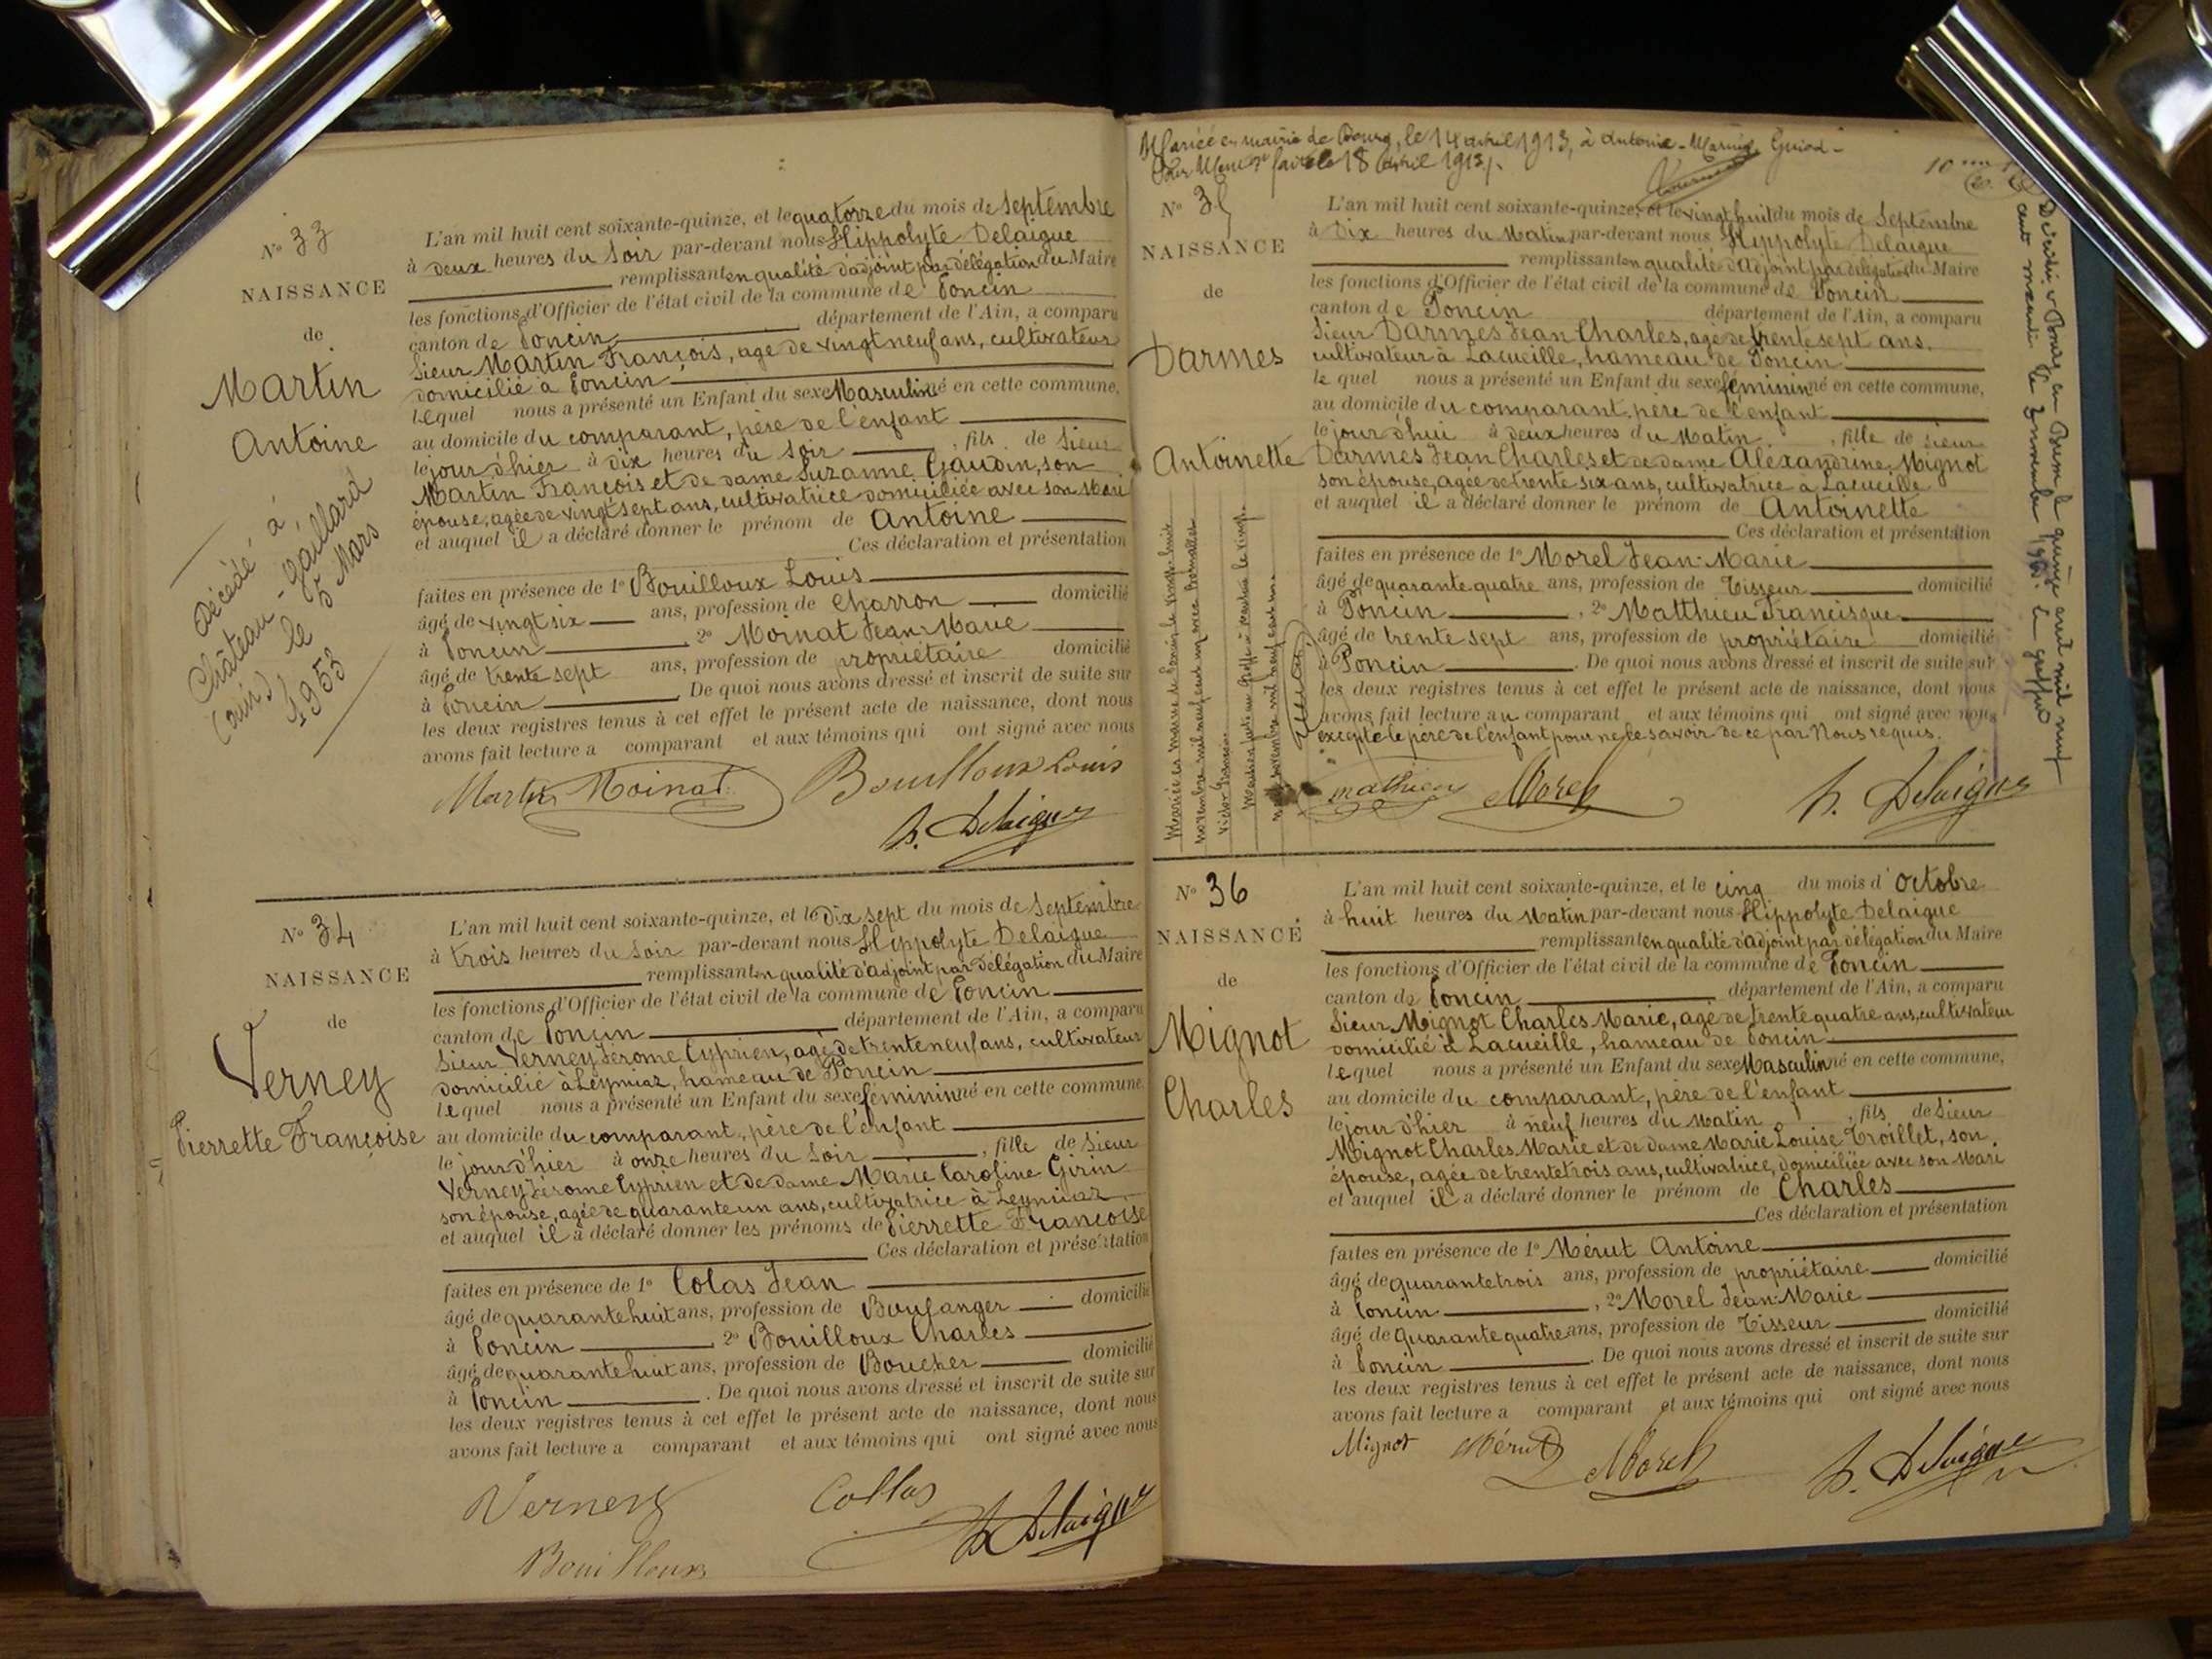 N° 33
NAISSANCE
de
Martin
Antoine
Décédé à
Château-Gaillard
(ain) le 5 Mars
1953
L'an mil huit cent soixante-quinze, et le quatorze du mois de Septembre
à deux heures du Soir par-devant nous Hippolyte Delaigue
remplissant en qualité d'adjoint par délégation du Maire
les fonctions d'Officier de l'état civil de la commune de Poncin
canton de Poncin département de l'Ain, a comparu
Sieur Martin François, agé de vingt neuf ans, cultivateur
domicilié à Poncin
lequel nous a présenté un Enfant du sexe Masculin né en cette commune,
au domicile du comparant, père de l'enfant
le jour d'hier à dix heures du Soir , fils de Sieur
Martin François et de dame Suzanne Gaudin, son
épouse, agée de vingt sept ans, cultivatrice domiciliée avec son Mari
et auquel il a déclaré donner le prénom de Antoine
Ces déclaration et présentation
faites en présence de 1° Bouilloux Louis
âgé de vingt six ans, profession de Charron domicilié
à Poncin 2° Moinat Jean-Marie
âgé de trente sept ans, profession de propriétaire domicilié
à Poncin . De quoi nous avons dressé et inscrit de suite sur
les deux registres tenus à cet effet le présent acte de naissance, dont nous
avons fait lecture a comparant et aux témoins qui ont signé avec nous
Martin Moinat Bouilloux Louis
h. Delaigue
N° 34
NAISSANCE
de
Verney
Pierrette Françoise
L'an mil huit cent soixante-quinze, et le Dix sept du mois de Septembre
à trois heures du Soir par-devant nous Hippolyte Delaigue
remplissant en qualité d'adjoint par délégation du Maire
les fonctions d'Officier de l'état civil de la commune de Poncin
canton de Poncin département de l'Ain, a comparu
Sieur Verney Jérome Cyprien, agé de trente neuf ans, cultivateur
domicilié à Leymiaz, hameau de Poncin
lequel nous a présenté un Enfant du sexe féminin né en cette commune,
au domicile du comparant, père de l'enfant
le jour d'hier à onze heures du Soir , fille de Sieur
Verney Jérome Cyprien et de dame Marie Caroline Girin
son épouse, agée de quarante un ans, cultivatrice à Leymiaz
et auquel il a déclaré donner les prénoms de Pierrette Françoise
Ces déclaration et présentation
faites en présence de 1° Colas Jean
âgé de quarante huit ans, profession de Boulanger domicilié
à Poncin 2° Bouilloux Charles
âgé de quarante huit ans, profession de Boucher domicilié
à Poncin . De quoi nous avons dressé et inscrit de suite sur
les deux registres tenus à cet effet le présent acte de naissance, dont nous
avons fait lecture a comparant et aux témoins qui ont signé avec nous
Verney Collas
h. Delaigue
Bouilloux
Mariée en mairie de Bourg, le 14 avril 1913, à Antoine-Marius Guiod
faite le 18 avril 1913
N° 35
NAISSANCE
de
Darmes
Antoinette
L'an mil huit cent soixante-quinze, et le vingt huit du mois de Septembre
à Dix heures du Matin par-devant nous Hippolyte Delaigue
remplissant en qualité d'Adjoint par délégation du Maire
les fonctions d'Officier de l'état civil de la commune de Poncin
canton de Poncin département de l'Ain, a comparu
Sieur Darmes Jean Charles, agé de trente sept ans,
cultivateur à Lacueille, hameau de Poncin
lequel nous a présenté un Enfant du sexe féminin né en cette commune,
au domicile du comparant, père de l'enfant
le jour d'hui à deux heures du Matin , fille de Sieur
Darmes Jean Charles et de dame Alexandrine Mignot
son épouse, agée de trente six ans, cultivatrice à Lacueille
et auquel il a déclaré donner le prénom de Antoinette
Ces déclaration et présentation
faites en présence de 1° Morel Jean-Marie
âgé de quarante quatre ans, profession de Tisseur domicilié
à Poncin , 2° Matthieu Francisque
âgé de trente sept ans, profession de propriétaire domicilié
à Poncin . De quoi nous avons dressé et inscrit de suite sur
les deux registres tenus à cet effet le présent acte de naissance, dont nous
avons fait lecture au comparant et aux témoins qui ont signé avec nous
excepté le père de l'enfant pour ne le savoir de ce par Nous requis.
mathieu Morel h. Delaigue
N° 36
NAISSANCE
de
Mignot
Charles
L'an mil huit cent soixante-quinze, et le cinq du mois d' Octobre
à huit heures du Matin par-devant nous Hippolyte Delaigue
remplissant en qualité d'adjoint par délégation du Maire
les fonctions d'Officier de l'état civil de la commune de Poncin
canton de Poncin département de l'Ain, a comparu
Sieur Mignot Charles Marie, agé de trente quatre ans, cultivateur
domicilié à Lacueille, hameau de Poncin
lequel nous a présenté un Enfant du sexe Masculin né en cette commune,
au domicile du comparant, père de l'enfant
le jour d'hier à neuf heures du Matin , fils de Sieur
Mignot Charles Marie et de dame Marie Louise Troillet, son
épouse, agée de trente trois ans, cultivatrice, domiciliée avec son Mari
et auquel il a déclaré donner le prénom de Charles
Ces déclaration et présentation
faites en présence de 1° Mérut Antoine
âgé de quarante trois ans, profession de propriétaire domicilié
à Poncin , 2° Morel Jean-Marie
âgé de Quarante quatre ans, profession de Tisseur domicilié
à Poncin . De quoi nous avons dressé et inscrit de suite sur
les deux registres tenus à cet effet le présent acte de naissance, dont nous
avons fait lecture a comparant et aux témoins qui ont signé avec nous
Mignot Mérut Morel h. Delaigue